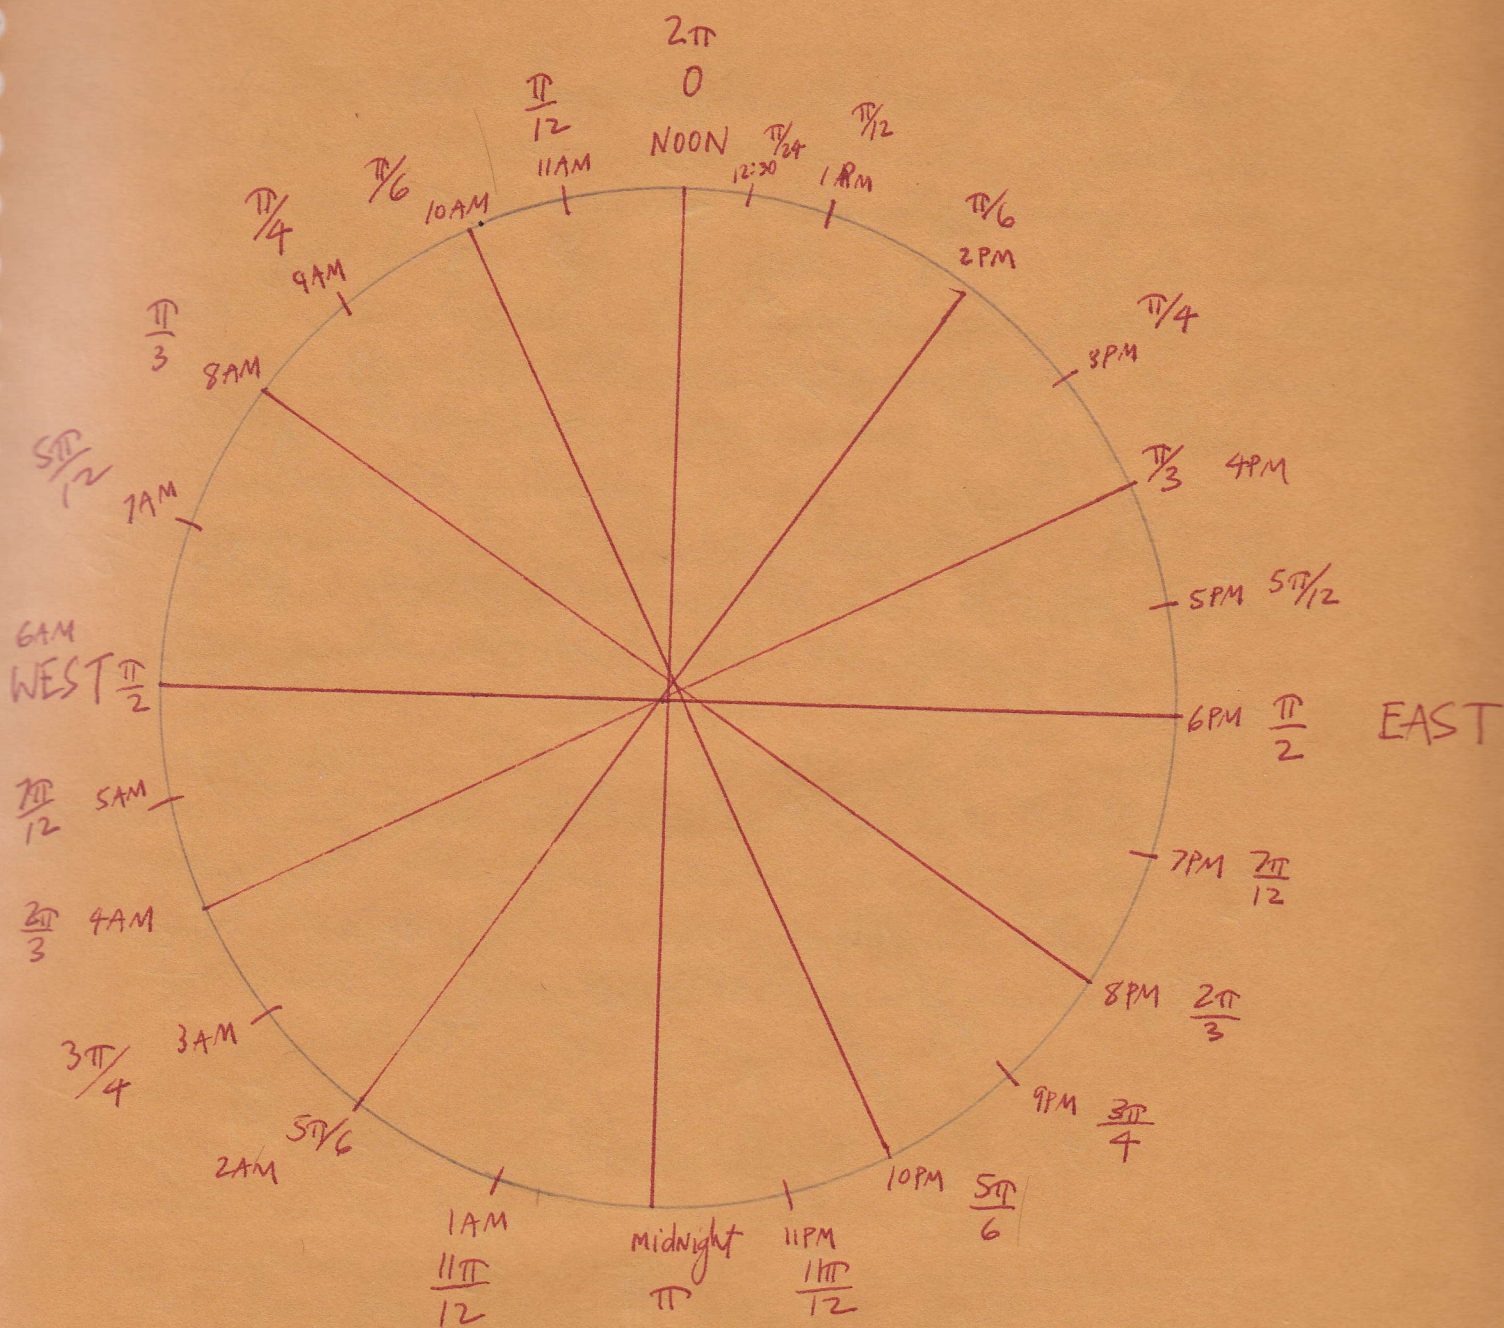 2π
0
NOON
π/24
12:30
π/12
1 PM
π/6
2PM
π/4
3PM
π/3 4PM
5PM 5π/12
6PM π/2 EAST
7PM 7π/12
8PM 2π/3
9PM 3π/4
10PM 5π/6
11PM
11π/12
MidNight
π
1AM
11π/12
5π/6
2AM
3AM
3π/4
2π/3 4AM
7π/12 5AM
6AM
WEST π/2
5π/12
7AM
π/3
8AM
π/4
9AM
π/6
10AM
π/12
11AM